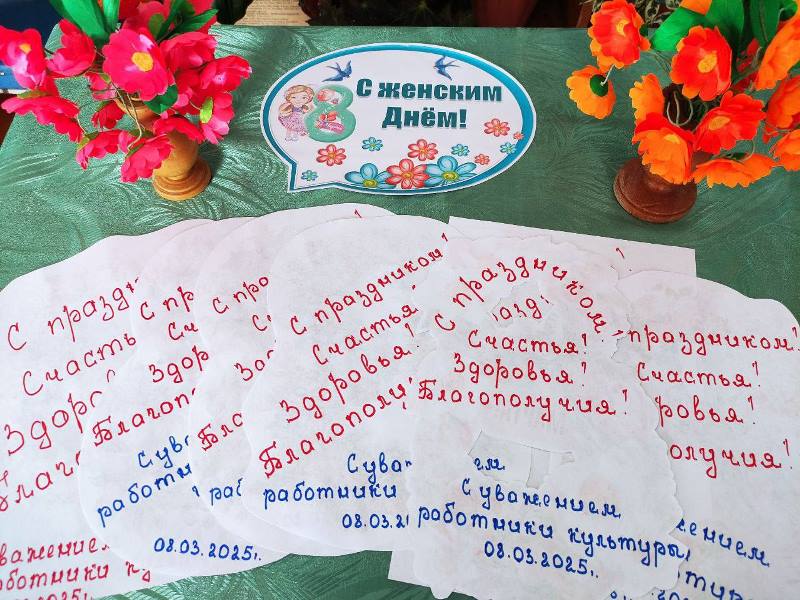 8
С женским
Днём!
С празд
Счасть
Здоро
Благо
уважением
работники ку
08.03.2025г.
С пр
Сч
Здор
Благопо
С ува
работни
08.03.2025г.
С пра
С
Зд
Бла
раб
С праздником!
Счастья!
Здоровья!
Благополуч
С ува
работники
08.03.2
С праздником!
разд
Счастья!
Здоровья!
Благополучия!
С уважением
работники культуры
08.03.2025г.
праздником!
Счастья!
ровья!
получия!
ением
туры